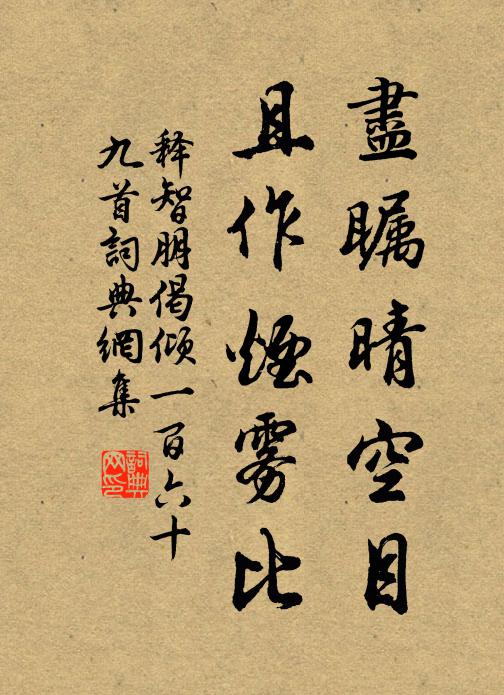 盡瞩晴空目
且作煙雾比
释智朋偈倾一百六十
九首詞典網集
詞典
网印